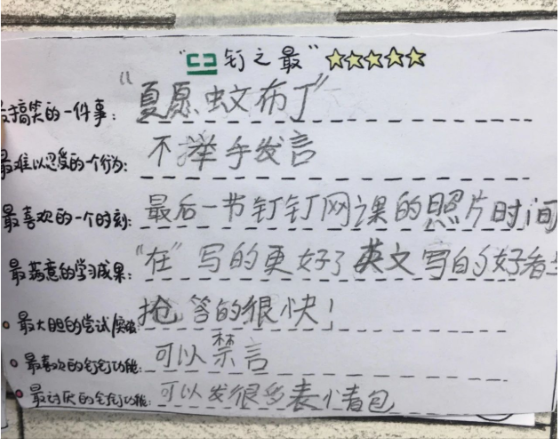 “钉钉之最”☆☆☆☆☆
最搞笑的一件事：“夏愿蚊布丁”
最难以忍受的一个行为：不举手发言
最喜欢的一个时刻：最后一节钉钉网课的照片时间
最满意的学习成果：“在”写的更好了 英文写的好看
最大胆的尝试/突破：抢答的很快！
最喜欢的钉钉功能：可以禁言
最讨厌的钉钉功能：可以发很多表情包